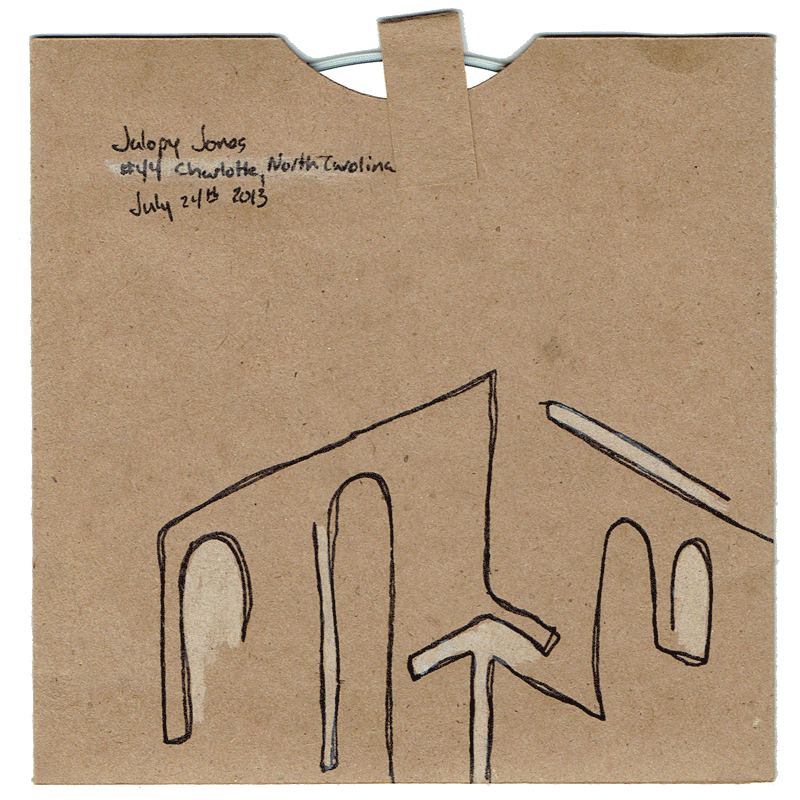 Jalopy Jones
#44 Charlotte, North Carolina
July 24th 2013